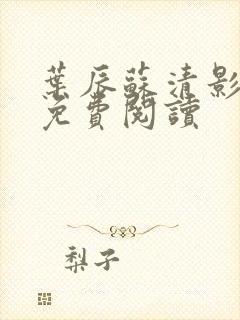 葉辰蘇清影
免費閱讀
梨子